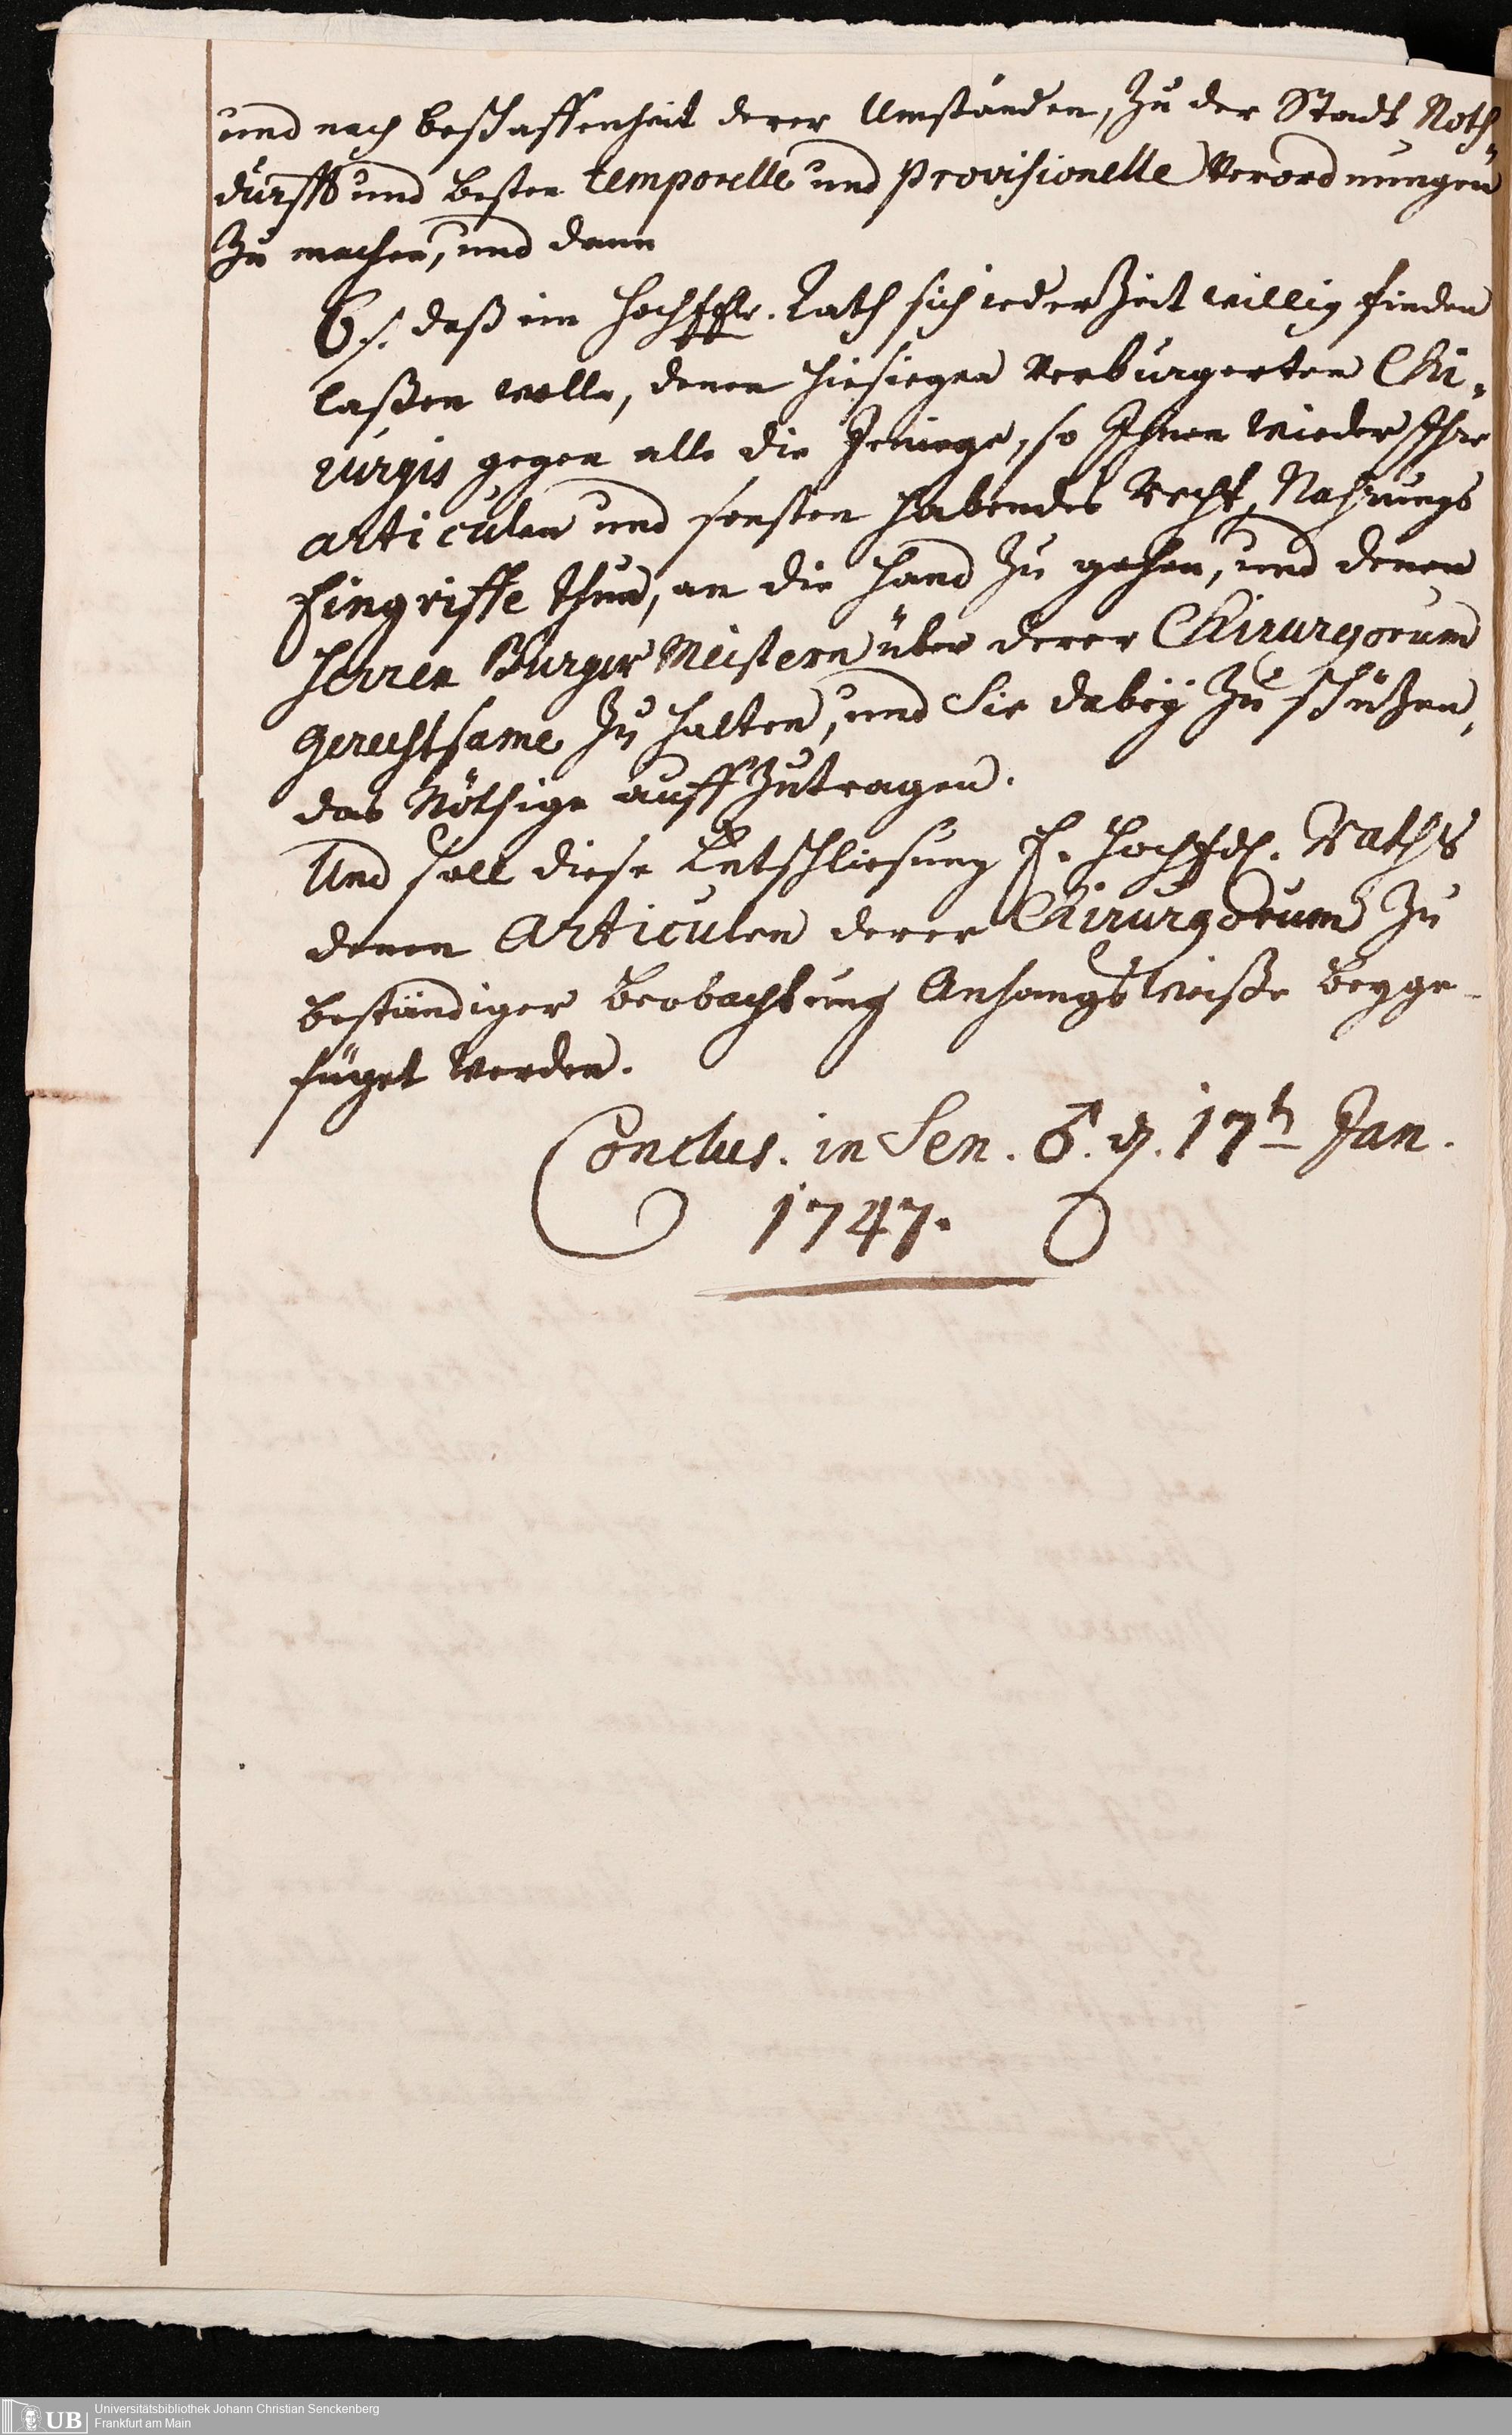 und nach beschaffenheit derer Umständen, zu der Stadt Noth-
durfft und besten temporelle und provisionelle Verordnungen
zu machen, und dann
6/. daß ein Hoch Edler Rath sich iederzeit willig finden
laßen wolle, denen hiesiegen Verburgerten Chi-
rurgis gegen alle die Jeniege, so Ihnen wieder Ihre
articulen und sonsten habendes Recht, Nahrungs
Eingriffe thun, an die Hand zu gehen, und denen
Herren Burger Meistern über derer Chirurgorum
Gerechtsame zu halten, und Sie dabey zu schützen,
das Nöthige auffzutragen.
Und soll diese Entschliesung E. HochEdl. Raths
denen Articulen derer Chirurgorum zu
beständiger beobachtung Anhangs Weiße beyge-
füget werden.
Conclus. in Sen. ♂. d. 17t Jan.
1747.
UB Universitätsbibliothek Johann Christian Senckenberg
Frankfurt am Main